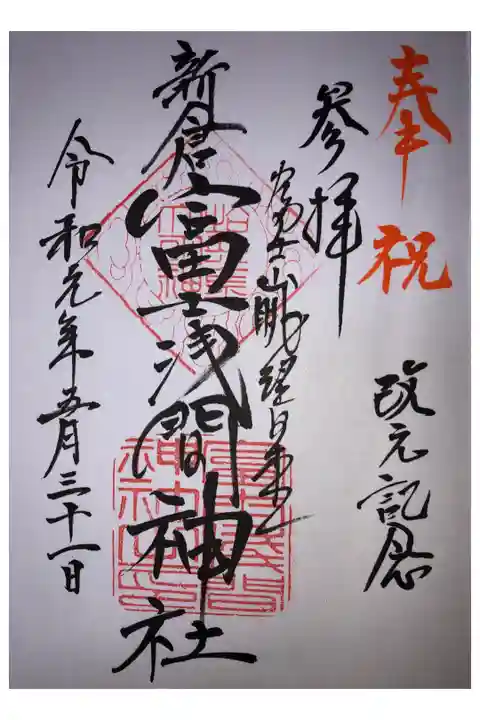 奉祝
改元記念
参拝
富士山眺望日本一
新倉富士浅間神社
令和元年五月三十一日